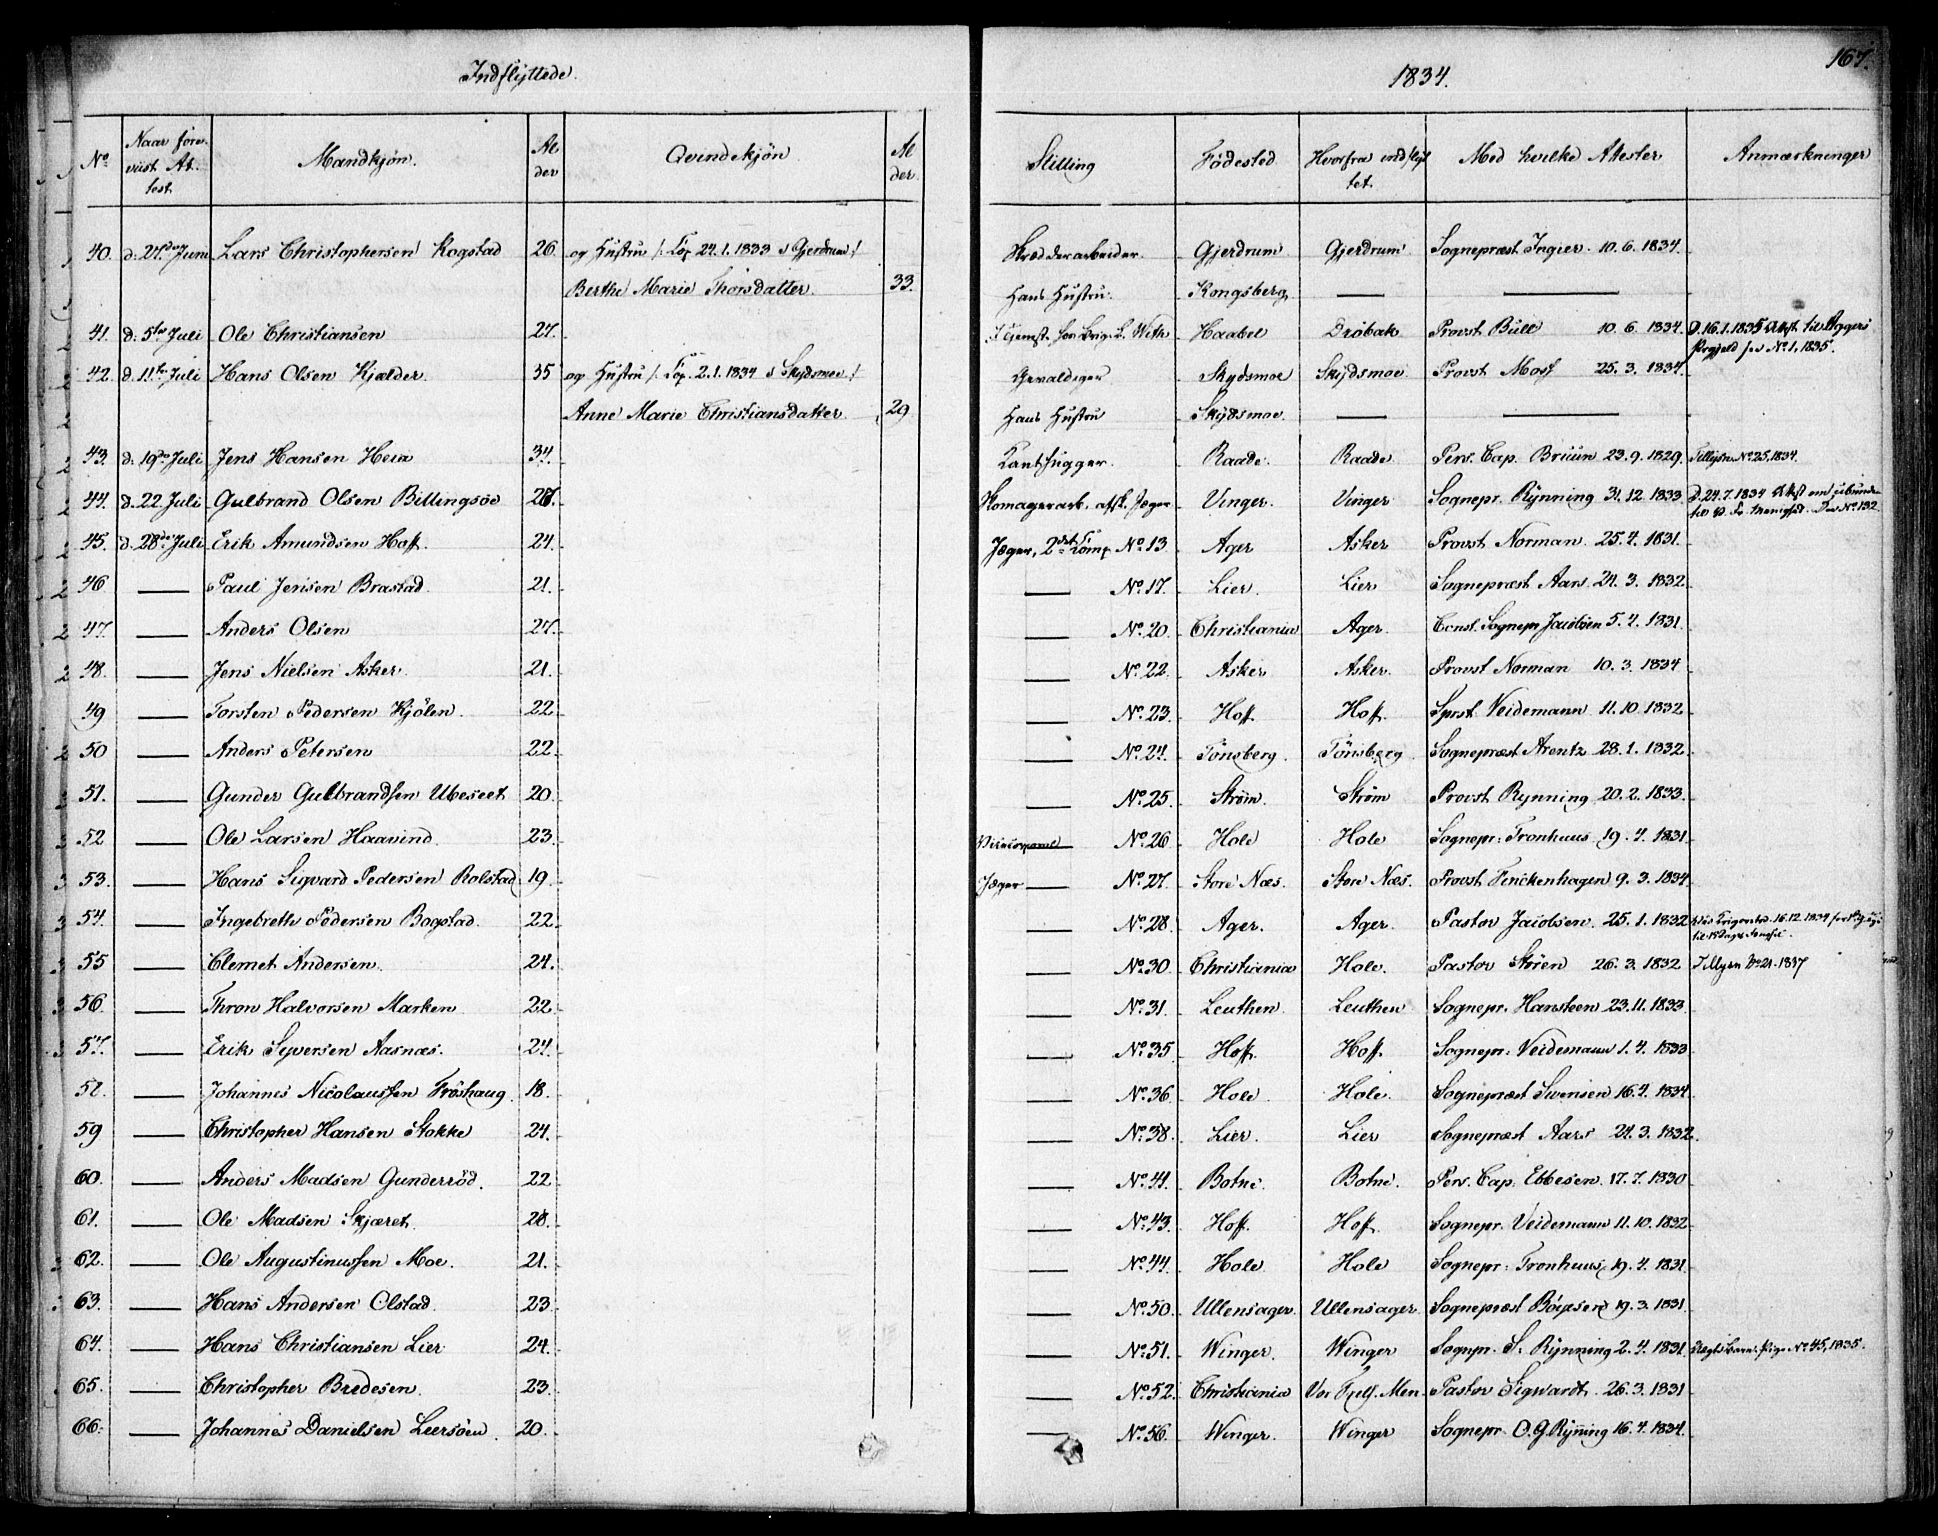 Indflyttede.
1834.
167.
No Naar fore- viist At- test Mandkjøn. Al der Qvindekjøn Al der. Stilling Födested Hvorfra indflyt tet. Med hvilke Atester Anmærkninger
40. d. 27de Juni Lars Christophersen Rogstad 26. og Hustru /: Cop. 24.1.1833 i Gjerdrum :/ Skrædderarbeider Gjerdrum Gjerdrum Sognepræst Ingier 10.6.1834.
Berthe Marie Thorsdatter. 33. Hans Hustru. Kongsberg — —
41. d. 5te Juli Ole Christiansen 27. Haabel Dröbak Provst Bull 10.6.1834. D. 16.1.1835 Attest til Aggers
Prgjeld No 1, 1835.
42. d. 11te Juli Hans Olsen Kjælder. 35 og Hustru /: Cop. 2.1.1834 i Skydsmoe :/ Gevaldiger Skydsmoe Skydsmoe Provst Moss 25.3.1834.
Anne Marie Christiansdatter 29 Hans Hustru Skydsmoe. — —
43. d. 19de Juli Jens Hansen Heia 34. Raade. Raade Pers. Cap. Bruun 23.9.1829. No 25, 1834.
44. d. 22 Juli Gulbrand Olsen Billingsöe 27. Skomagerarb. afsk. Jæger Vinger. Vinger Sognepr. Rynning 31.12.1833 D. 24.7.1834 Attest om
No 132
45. d. 28de Juli Erik Amundsen Hoff. 24. Jæger, 2det Comp No 13 Ager Asker Provst Norman 25.4.1831.
46 — Paul Jensen Brastad 21. — No 17. Lier. Lier Sognepræst Aars 24.3.1832.
47. — Anders Olsen 27. — No 20. Christiania Ager. Const. Sognepr Jacobsen 5.4.1831.
48. — Jens Nielsen Asker. 21. — No 22. Asker Asker. Provst Norman 10.3.1834
49 — Torsten Pedersen Kjölen. 22. — No 23. Hoff. Hoff. Sprst Veidemann 11.10.1832
50 — Anders Petersen 22. — No 24. Tönsberg. Tönsberg Sognepræst Arentz 28.1.1832.
51. — Gunder Gulbrandsen Ubeseet 20. — No 25. Ström. Ström Provst Rynning 20.2.1833.
52 — Ole Larsen Haavind. 23. Vicecorporal No 26 Hole Hole Sognepr: Tronhuus 19.4.1831.
53. — Hans Sigvard Pedersen Rolstad 19. Jæger — No 27. Store Næs. Store Næs. Provst Finckenhagen 9.3.1834.
54. — Ingebreth Pedersen Bogstad. 22. — No 28. Ager. Ager. Pastor Jacobsen 25.1.1832 16.12.1834
55 — Clemet Andersen. 24. — No 30 Christiania Hole. Pastor Stören 26.3.1832 1837
56. — Thron Halvorsen Marken 22. — No 31. Leuthen Leuthen Sognepr. Hansteen 23.11.1833
57. — Erik Syversen Aasnæs. 24. — No 35 Hoff. Hoff. Sognepr: Veidemann 1.4.1833
58. — Johannes Nicolaussen Fröshaug. 18. — No 36. Hole Hole. Sognepræst Svensen 16.4.1834.
59 — Christopher Hansen Stokke 24. — No 38. Lier. Lier Sognepræst Aars 24.3.1832.
60. — Anders Madsen Gunderröd. 22 — No 41. Botne. Botne. Pers. Cap. Ebbesen 17.7.1830
61. — Ole Madsen Skjæret. 28. — No 43. Hoff. Hoff. Sognepr. Veidemann 11.10.1832
62. — Ole Augustinussen Moe. 21. — No 44. Hole Hole Sognepr: Tronhuus 19.4.1831.
63. — Hans Andersen Olstad. 23. — No 50. Ullensager. Ullensager Sognepræst 19.3.1831.
64. — Hans Christiansen Lier 24. — No 51. Winger. Winger Sognpr. S. Rynning 2.4.1831. No 45, 1835.
65. — Christopher Bredesen. 23. — No 52. Christiania Vor Frels. Men. Pastor Sigwardt 26.3.1831
66. — Johannes Danielsen Leersöen 20. — No 56. Winger. Winger Sognepr O.G. Rynning 16.4.1834.